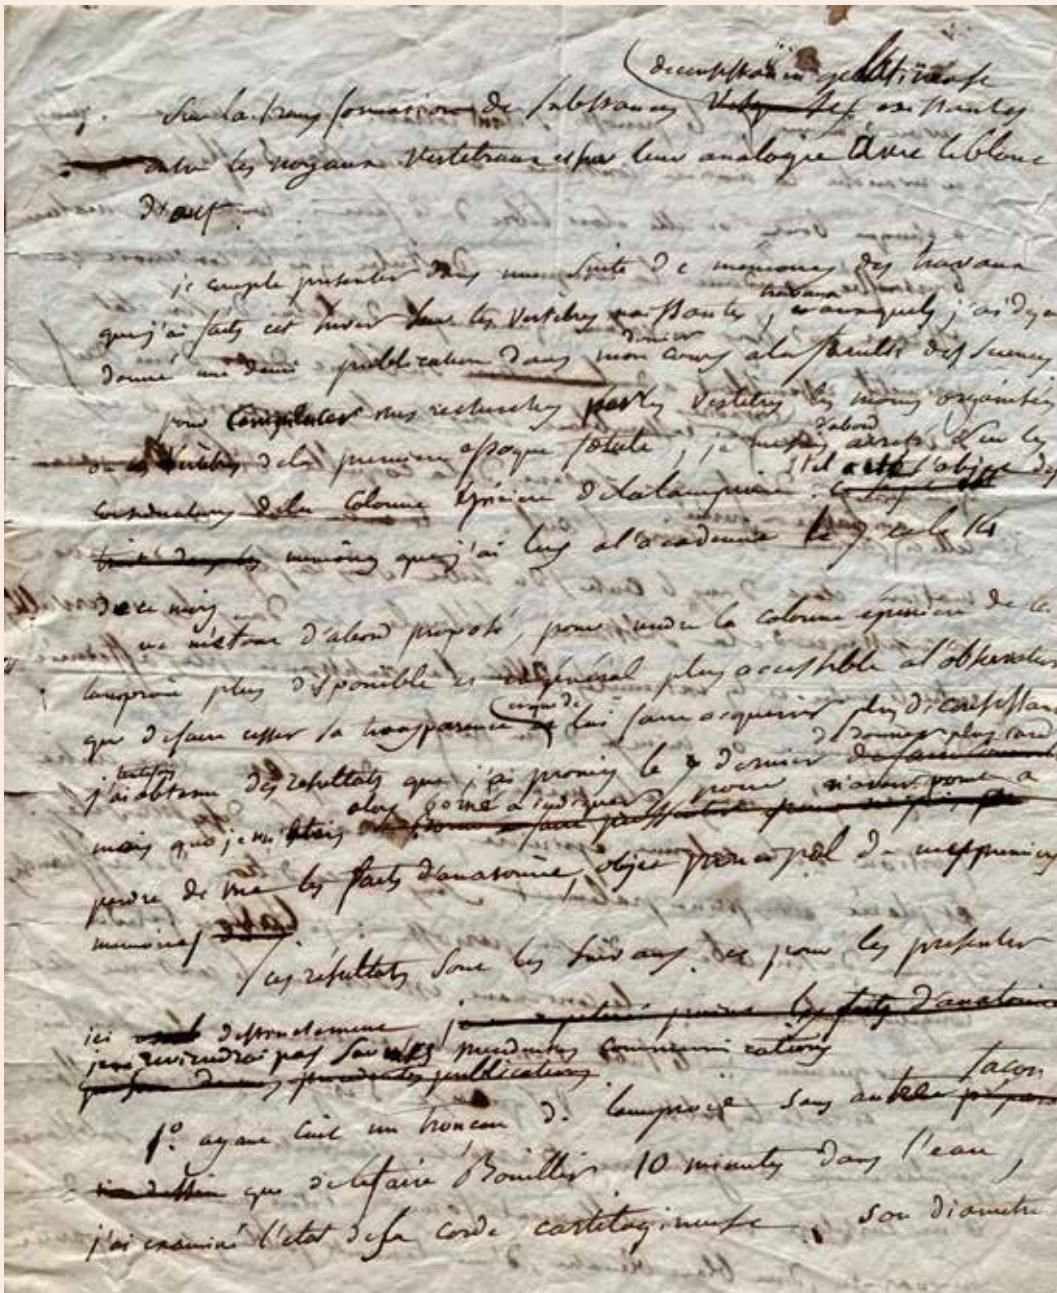 de consistance gelatineuse
Sur la transformation de substances existantes
entre les noyaux vertebraux et sur leur analogie avec le blanc
d'œuf.
je compte presenter dans une suite de memoires des travaux
que j'ai faits cet hiver sur les vertebres naissantes, travaux auxquels j'ai deja
donné une demi publication dans mon dernier cours a la faculté des sciences
pour completer mes recherches par les vertebres les moins organisées
ou vertebres de la premiere epoque foetale, je d'abord arreté sur les
de la colonne épiniere de la lamproie. tel a été l'objet des
memoires que j'ai lus a l'academie le 7 et le 14
de ce mois
d'abord proposé, pour rendre la colonne epiniere de la
lamproie plus disponible et en général plus accessible a l'observation
que de faire cesser sa transparence et lui faire acquerir plus de consistance
j'ai toutefois obtenu des resultats que j'ai promis le 7 dernier de donner plus tard
mais que je me etais alors borné a indiquer pour n'avoir point a
perdre de vue les faits d'anatomie, objet principal de mes premiers
memoires
ces resultats sont les suivans. et pour les presenter
ici distinctement je les faits d'anatomie
je ne reviendrai pas sur mes communications
precedentes publications
1° ayant cuit un tronçon de lamproie sans autre façon
que de le faire Bouillir 10 minutes dans l'eau,
j'ai examiné l'etat de sa corde cartilagineuse. son diametre